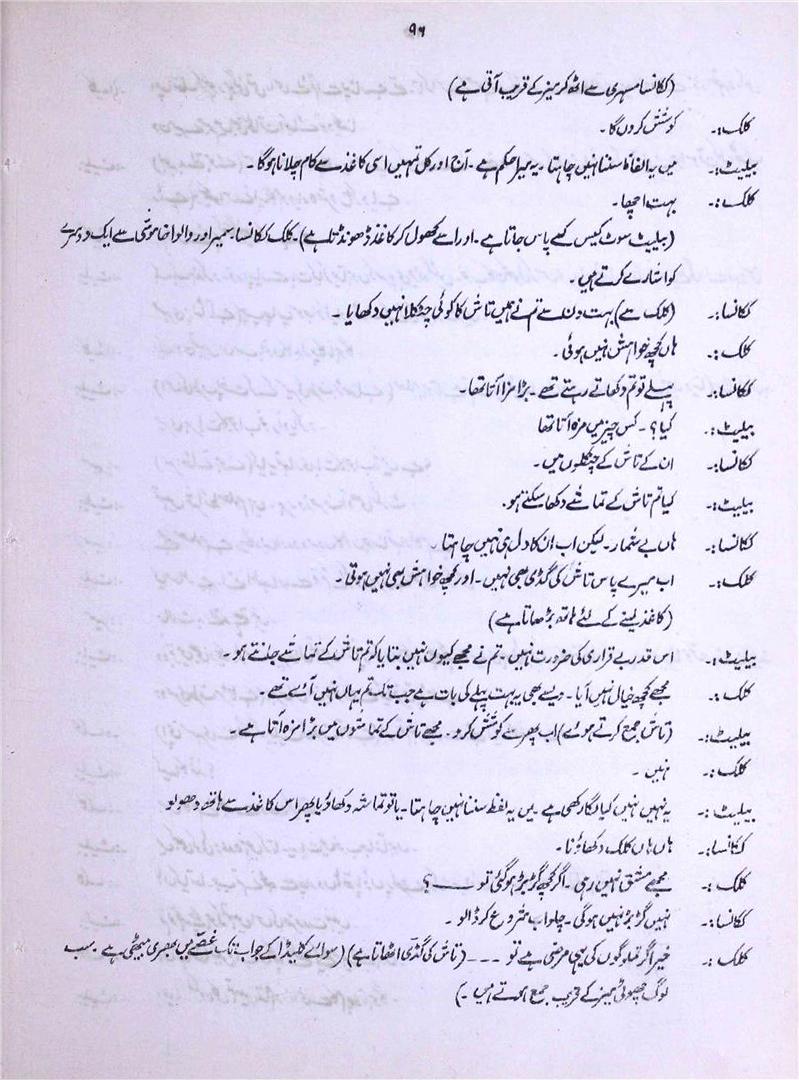 ۹۶
(ککانسا مسہری سے اٹھ کر میز کے قریب آتی ہے)
کلک:۔ کوشش کروں گا۔
بیلیٹ:۔ میں یہ الفاظ سننا نہیں چاہتا۔ یہ میرا حکم ہے۔ آج اور کل تمہیں اسی کاغذ سے کام چلانا ہو گا۔
کلک:۔ بہت اچھا۔
(بیلیٹ سوٹ کیس کے پاس جاتا ہے۔ اور اسے کھول کر کاغذ ڈھونڈتا ہے)۔ کلک ککانسا۔ سمیر اور والوا خاموشی سے ایک دوسرے
کو اشارے کرتے ہیں۔
ککانسا:۔ (کلک سے) بہت دن سے تم نے ہمیں تاش کا کوئی چٹکلا نہیں دکھایا۔
کلک:۔ ہاں کچھ خواہش نہیں ہوئی۔
ککانسا:۔ پہلے تو تم دکھاتے رہتے تھے۔ بڑا مزا آتا تھا۔
بیلیٹ:۔ کیا؟۔ کس چیز میں مزہ آتا تھا
ککانسا:۔ ان کے تاش کے چٹکلوں میں۔
بیلیٹ:۔ کیا تم تاش کے تماشے دکھا سکتے ہو۔
ککانسا:۔ ہاں بے شمار۔ لیکن اب ان کا دل ہی نہیں چاہتا۔
کلک:۔ اب میرے پاس تاش کی گڈی بھی نہیں۔ اور کچھ خواہش بھی نہیں ہوتی۔
(کاغذ لینے کے لئے ہاتھ بڑھاتا ہے)
بیلیٹ:۔ اس قدر بے قراری کی ضرورت نہیں۔ تم نے مجھے کیوں نہیں بتایا کہ تم تاش کے تماشے جانتے ہو۔
کلک:۔ مجھے کچھ خیال نہیں آیا۔ ویسے بھی یہ بہت پہلے کی بات ہے جب تک تم یہاں نہیں آئے تھے۔
بیلیٹ:۔ (تاش جمع کرتے ہوئے) اب پھر سے کوشش کرو۔ مجھے تاش کے تماشوں میں بڑا مزہ آتا ہے۔
کلک:۔ نہیں۔
بیلیٹ:۔ یہ نہیں نہیں کیا لگا رکھی ہے۔ میں یہ لفظ سننا نہیں چاہتا۔ یا تو تماشہ دکھاؤ یا پھر اس کاغذ سے ہاتھ دھو لو
ککانسا:۔ ہاں ہاں کلک دکھاؤ نا۔
کلک:۔ مجھے مشق نہیں رہی۔ اگر کچھ گڑبڑ ہو گئی تو ۔۔۔۔؟
ککانسا:۔ نہیں گڑبڑ نہیں ہو گی۔ چلو اب شروع کر ڈالو۔
کلک:۔ خیر اگر تم لوگوں کی یہی مرضی ہے تو ۔۔۔ (تاش کی گڈی اٹھاتا ہے) (سوائے کلیڈا کے جو اب تک غصے میں بھری بیٹھی ہے۔ سب
لوگ چھوٹی میز کے قریب جمع ہوتے ہیں۔)